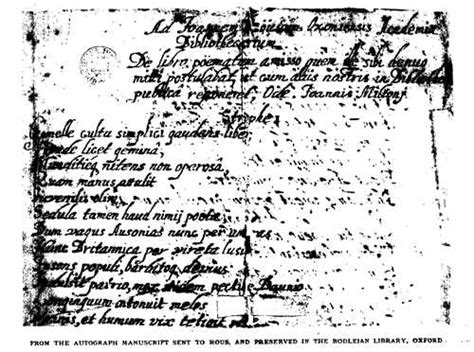 Ad Joannem Rousium Oxoniensis Academiæ
Bibliothecarium.
De libro poematum amisso quem sibi denuo
mitti postulabat, ut cum aliis nostris in Biblioth
publica reponeret, Ode. Joannis Miltonj
Strophe
Gemelle cultu simplici gaudens liber
Fronde licet gemina,
Munditieq nitens non operosa,
Quam manus attulit
iuvenilis olim,
Sedula tamen haud nimij poetæ
Dum vagus Ausonias nunc per umbras
Nunc Britannica per vireta lusit
Insons populi, barbitoq devius
Indulsit patrio, mox itidem pectine Daunio
Longinquum intonuit melos
Vicinis, et humum vix tetigit
FROM THE AUTOGRAPH MANUSCRIPT SENT TO ROUS, AND PRESERVED IN THE BODLEIAN LIBRARY, OXFORD